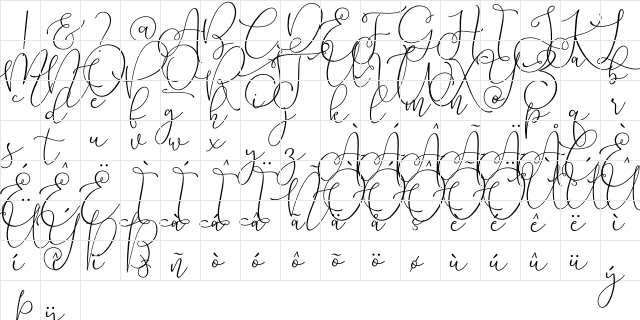 ! & ? @ A B C D E F G H I J K L
M N O P Q R S T U V W X Y Z a b
c d e f g h i j k l m n o p q r
s t u v w x y z À Á Â Ã Ä Å Ç È
É Ê Ë Ì Í Î Ï Ñ Ò Ó Ô Õ Ö Ù Ú Û
Ü Ý Þ ß à á â ã ä å ç è é ê ë ì
í î ï ð ñ ò ó ô õ ö ø ù ú û ü ý
þ ÿ